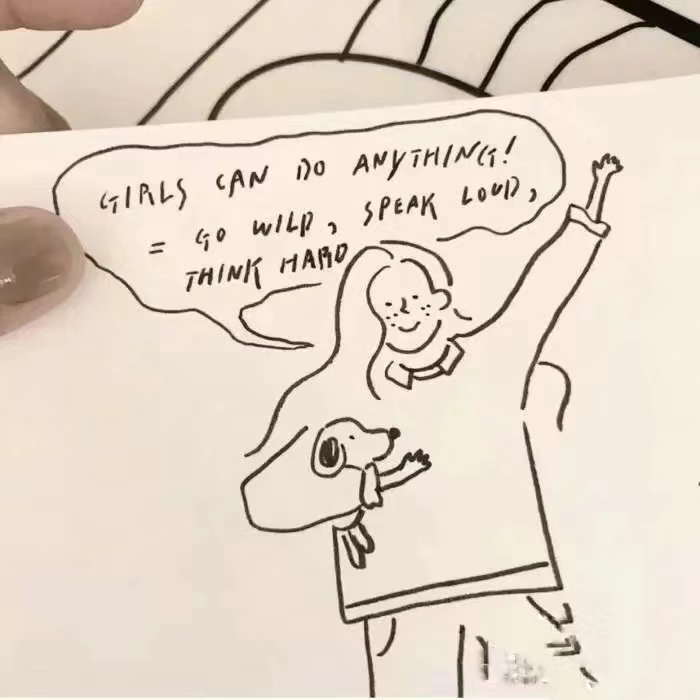 GIRLS CAN DO ANYTHING!
= GO WILD, SPEAK LOUD,
THINK HARD